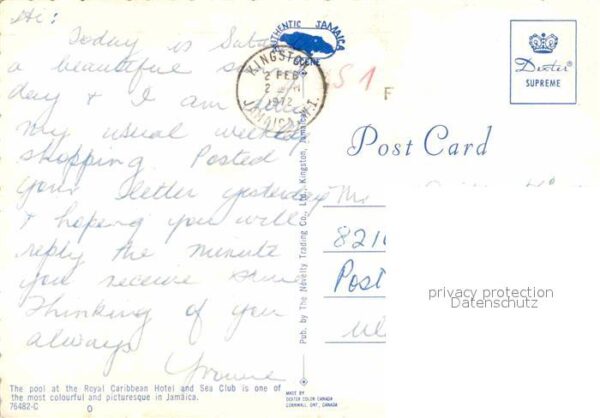 Hi:
Today is Satu
a beautiful
day + I am
my usual weekly
shopping. Posted
your letter yesterday
+ hoping you will
reply the minute
you receive
Thinking of you
always
Yvonne
The pool at the Royal Caribbean Hotel and Sea Club is one of
the most colourful and picturesque in Jamaica.
76482-C
AUTHENTIC JAMAICA
SCENE
KINGSTON
2 FEB
1972
JAMAICA W.I.
51
F
Pub. by The Novelty Trading Co., Ltd., Kingston, Jamaica
MADE BY
DEXTER COLOR CANADA
CORNWALL, ONT., CANADA
Dexter®
SUPREME
Post Card
Mr
821
Post
privacy protection
Datenschutz